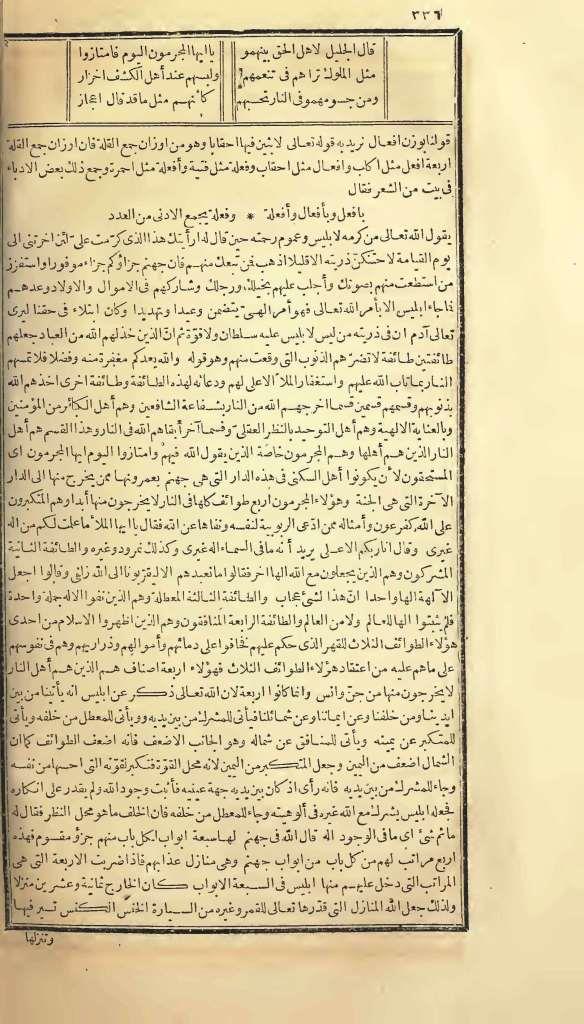 ٣٣٦
قال الجليل لاهل الحق بينهمو يا ايها المجرمون اليوم فامتازوا
مثل الملوك تراهم فى تنعمهم ولبسهم عند أهل الكشف اخزاز
ومن جسومهمو فى النار تحسبهم كأنهم مثل ما قد قال اعجاز
قولنا بوزن افعال نريد به قوله تعالى لابثين فيها احقابا وهو من اوزان جمع القلة فان اوزان جمع القلة
اربعة افعل مثل اكلب وافعال مثل احقاب وفعلة مثل فتية وأفعلة مثل احمرة وجمع ذلك بعض الادباء
فى بيت من الشعر فقال
بافعل وبأفعال وأفعلة * وفعلة يجمع الادنى من العدد
يقول الله تعالى من كرمه لابليس وعموم رحمته حين قال له ارأيتك هذا الذى كرمت على لئن اخرتنى الى
يوم القيامة لاحتنكن ذريته الا قليلا اذهب فمن تبعك منهم فان جهنم جزاؤكم جزاء موفورا واستفزز
من استطعت منهم بصوتك وأجلب عليهم بخيلك ورجلك وشاركهم فى الاموال والاولاد وعدهم
فما جاء ابليس الا بأمر الله تعالى فهو أمر الهى يتضمن وعيدا وتهديدا وكان ابتلاء فى حقنا ليرى
تعالى آدم ان فى ذريته من ليس لابليس عليه سلطان ولا قوة ثم ان الذين خذلهم الله من العباد جعلهم
طائفتين طائفة لا تضرهم الذنوب التى وقعت منهم وهو قوله والله يعدكم مغفرة منه وفضلا فلا تمسهم
النار بما تاب الله عليهم واستغفار الملأ الاعلى لهم ودعائه لهذه الطائفة وطائفة اخرى اخذهم الله
بذنوبهم وقسمهم قسمين قسما اخرجهم الله من النار بشفاعة الشافعين وهم أهل الكبائر من المؤمنين
وبالعناية الالهية وهم أهل التوحيد بالنظر العقلى وقسما آخر أبقاهم الله فى النار وهذا القسم هم أهل
النار الذين هم أهلها وهم المجرمون خاصة الذين يقول الله فيهم وامتازوا اليوم ايها المجرمون اى
المستحقون لأن يكونوا أهل السكنى فى هذه الدار التى هى جهنم يعمرونها ممن يخرج منها الى الدار
الآخرة التى هى الجنة وهؤلاء المجرمون اربع طوائف كلها فى النار لا يخرجون منها ابدا وهم المتكبرون
على الله كفرعون وأمثاله ممن ادعى الربوبية لنفسه ونفاها عن الله فقال يا ايها الملأ ما علمت لكم من اله
غيرى وقال انا ربكم الاعلى يريد أنه ما فى السماء اله غيرى وكذلك نمرود وغيره والطائفة الثانية
المشركون وهم الذين يجعلون مع الله الها اخر فقالوا ما نعبدهم الا ليقربونا الى الله زلفى وقالوا اجعل
الآلهة الها واحدا ان هذا لشئ عجاب والطائفة الثالثة المعطلة وهم الذين نفوا الاله جملة واحدة
فلم يثبتوا الها للعالم ولا من العالم والطائفة الرابعة المنافقون وهم الذين اظهروا الاسلام من احدى
هؤلاء الطوائف الثلاث للقهر الذى حكم عليهم فخافوا على دمائهم وأموالهم وذراريهم وهم فى نفوسهم
على ما هم عليه من اعتقاد هؤلاء الطوائف الثلاث فهؤلاء اربعة اصناف هم الذين هم أهل النار
لا يخرجون منها من جن وانس وانما كانوا اربعة لان الله تعالى ذكر عن ابليس انه يأتينا من بين
ايدينا ومن خلفنا وعن ايماننا وعن شمائلنا فيأتى للمشرك من بين يديه ويأتى للمعطل من خلفه ويأتى
للمتكبر عن يمينه ويأتى للمنافق عن شماله وهو الجانب الاضعف فانه اضعف الطوائف كما ان
الشمال اضعف من اليمين وجعل المتكبر من اليمين لانه محل القوة فتكبر لقوته التى احسها من نفسه
وجاء للمشرك من بين يديه فانه رأى اذ كان بين يديه جهة عينيه فأثبت وجود الله ولم يقدر على انكاره
فجعله ابليس يشرك مع الله غيره فى ألوهيته وجاء للمعطل من خلفه فان الخلف ما هو محل النظر فقال له
ما ثم شئ اى ما فى الوجود اله قال الله فى جهنم لها سبعة ابواب لكل باب منهم جزؤ مقسوم فهذه
اربع مراتب لهم من كل باب من ابواب جهنم وهى منازل عذابهم فاذا ضربت الاربعة التى هى
المراتب التى دخل عليهم منها ابليس فى السبعة الابواب كان الخارج ثمانية وعشرين منزلا
ولذلك جعل الله المنازل التى قدرها تعالى للقمر وغيره من السيارة الخنس الكنس تسير فيها
وتنزلها